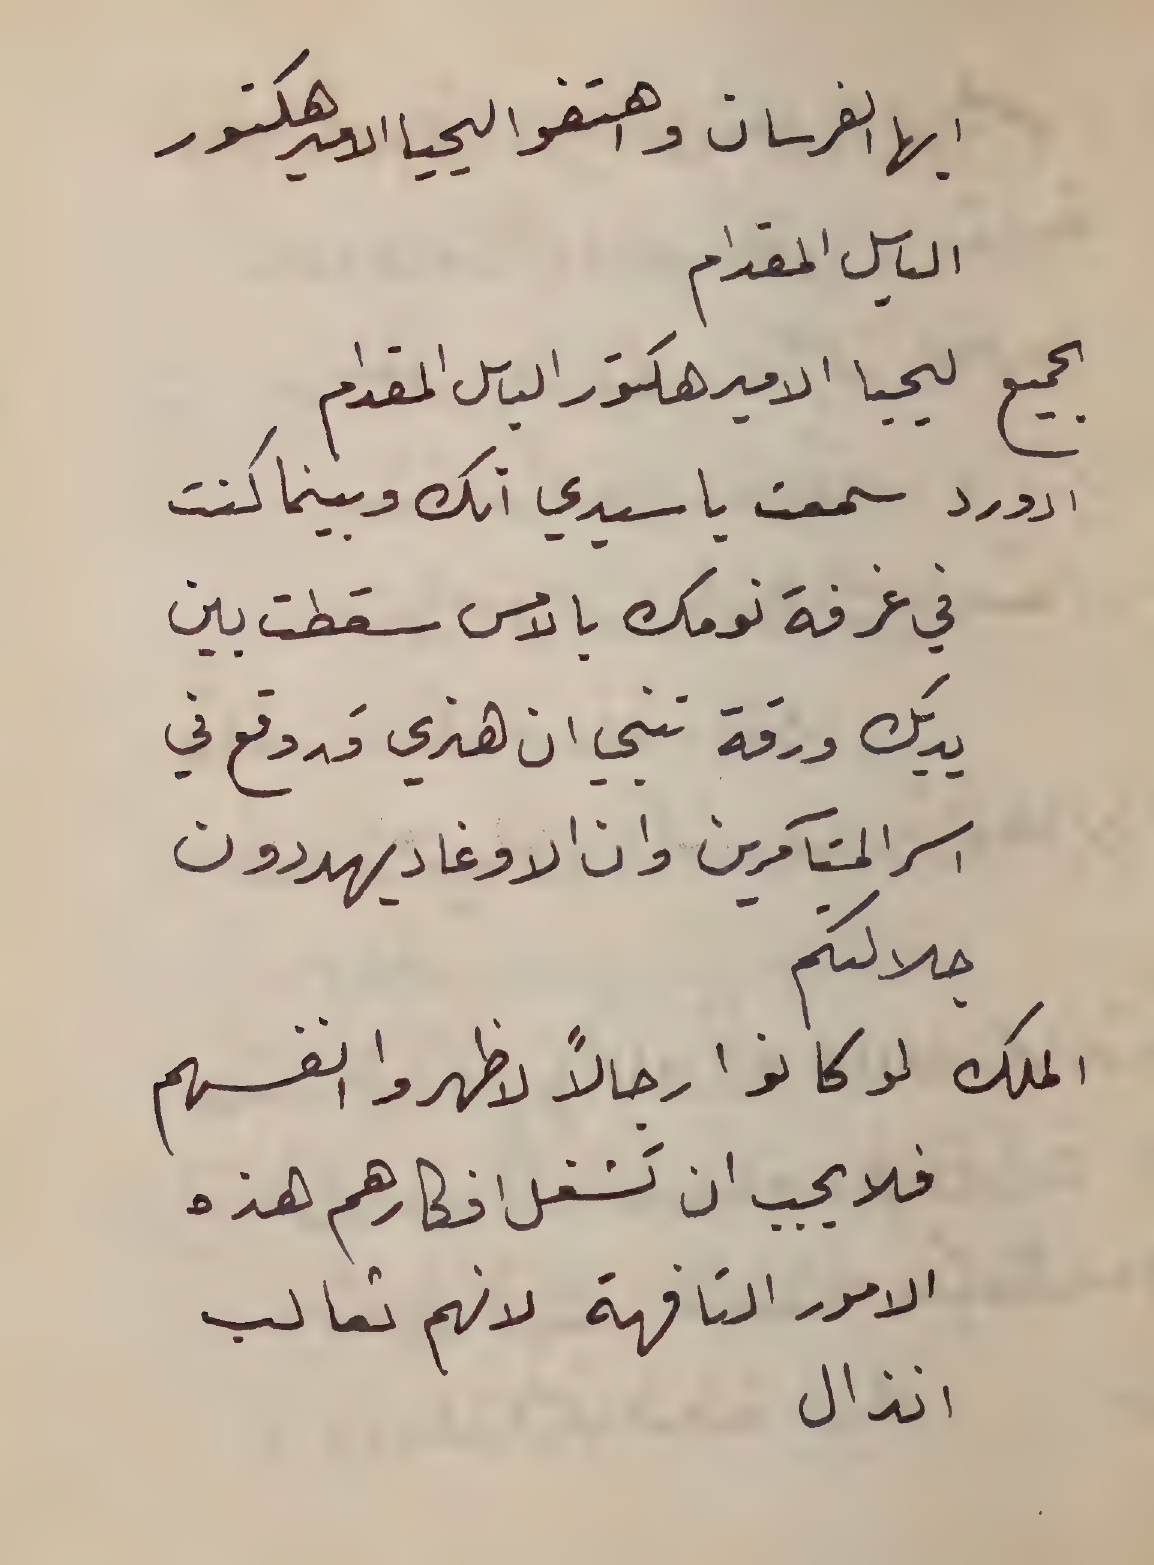 ايها الفرسان واهتفوا ليحيا الامير هكتور
الباسل المقدام
الجميع ليحيا الامير هكتور الباسل المقدام
ادورد سمعت يا سيدي انك وبينما كنت
في غرفة نومك بالامس سقطت بين
يديك ورقة تنبي ان هنري قد وقع في
اسر المتآمرين وان الاوغاد يهددون
جلالتكم
الملك لو كانوا رجالاً لاظهروا انفسهم
فلا يجب ان تشغل افكارهم هذه
الامور التافهة لانهم ثعالب
انذال